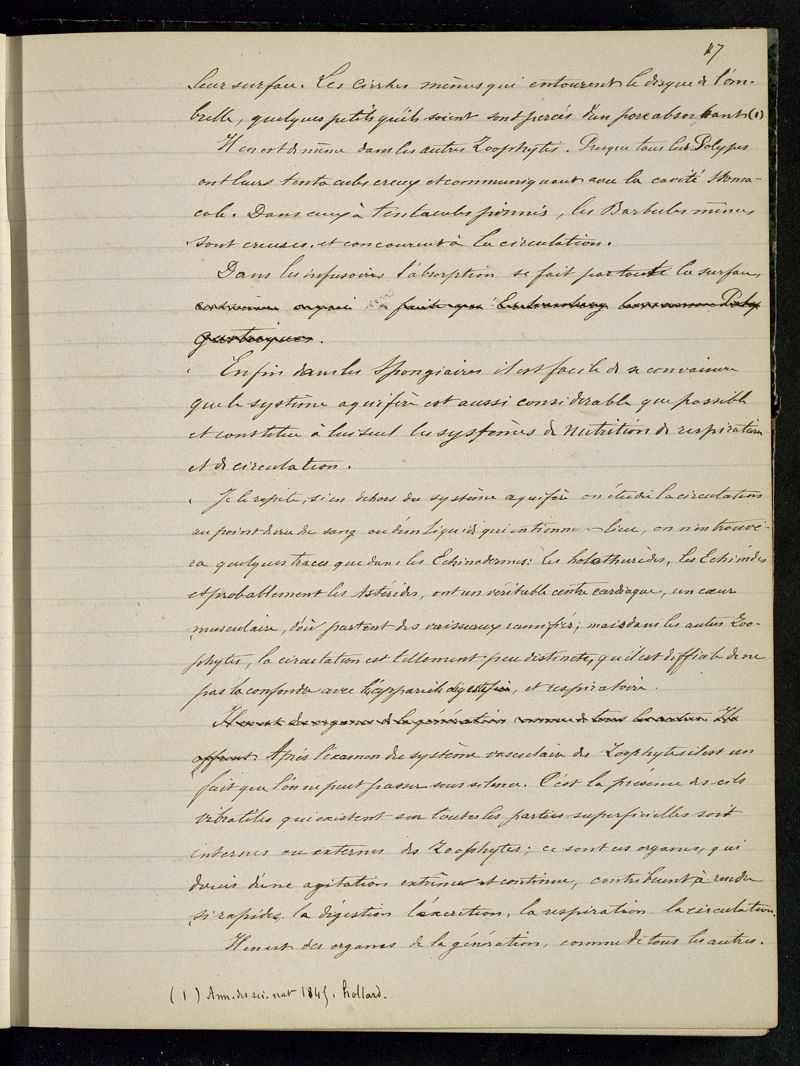 47
leur surface. Les cirrhes mêmes qui entourent le disque de l'om-
brelle, quelques petits qu'ils soient sont percés d'un pore absorbant (1)
Il en est de même dans les autres Zoophytes. Presque tous les Polypes
ont leurs tentacules creux et communiquant avec la cavité stoma-
cale. Dans ceux à tentacules pinnés, les Barbules mêmes
sont creuses. et concourent à la circulation.
Dans les infusoires l'absorption se fait par toute la surface,
Enfin dans les Spongiaires il est facile de se convaincre
que le système aquifère est aussi considérable que possible
et constitue à lui seul les systèmes de nutrition de respiration
et de circulation.
Je le répète, si en dehors du système aquifère on étudie la circulation
au point de vue de sang ou d'un liquide qui en tienne lieu, on n'en trouve-
ra quelques traces que dans les Echinodermes: les holothurides, les Echinides
et probablement les Astérides, ont un véritable centre cardiaque, un cœur
musculaire, d'où partent des vaisseaux ramifiés; mais dans les autres Zoo-
phytes, la circulation est tellement peu distincte, qu'il est difficile de ne
pas la confondre avec l'appareil digestif, et respiratoire.
Il en est des organes de la génération comme de tous les autres
Après l'examen du système vasculaire des Zoophytes il est un
fait que l'on ne peut passer sous silence. C'est la présence des cils
vibratiles qui existent sur toutes les parties superficielles soit
internes ou externes des Zoophytes; ce sont ces organes, qui
doués d'une agitation extrême et continue, contribuent à rendre
si rapides la digestion l'excrétion, la respiration la circulation.
Il en est des organes de la génération, comme de tous les autres.
(1) Ann. des sci. nat 1845. hollard.